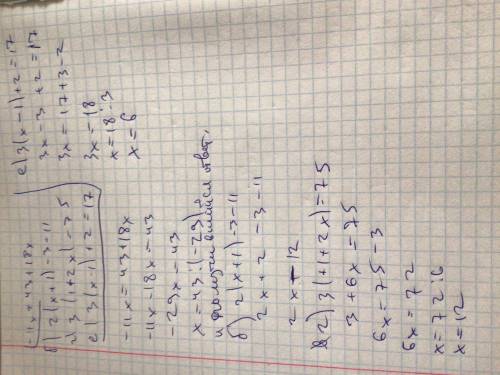 -11x = 43+18x
б) 2(x+1)-3=11
2) 3(1+2x)=75
е) 3(x-1)+2=17
-11x = 43+18x
-11x-18x=43
-29x=43
x=43:(-29)
и
ответ.
б) 2(x+1)-3=11
2x+2-3=11
2x=12
2) 3(1+2x)=75
3+6x=75
6x=75-3
6x=72
x=72:6
x=12
е) 3(x-1)+2=17
3x-3+2=17
3x=17+3-2
3x=18
x=18:3
x=6